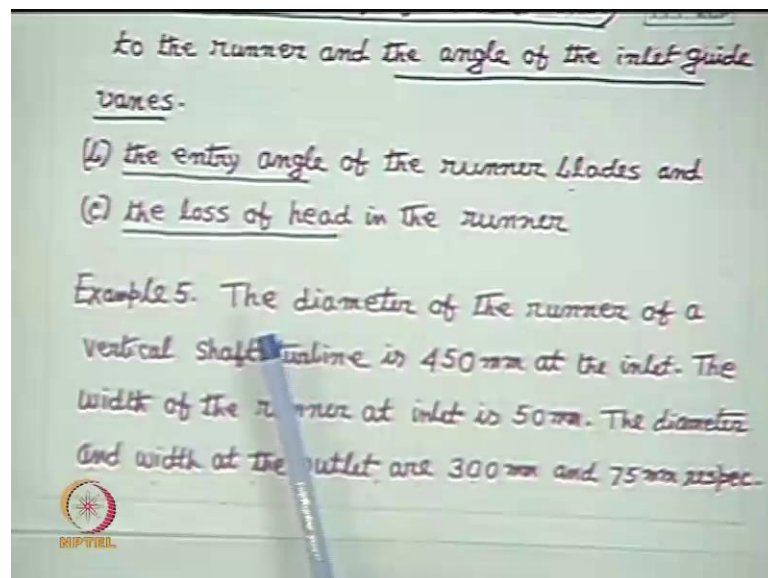 to the runner and the angle of the inlet guide
vanes.
(b) the entry angle of the runner blades and
(c) the loss of head in the runner
Example 5. The diameter of the runner of a
vertical shaft turbine is 450 mm at the inlet. The
width of the runner at inlet is 50 mm. The diameter
and width at the outlet are 300 mm and 75 mm respec-
NPTEL